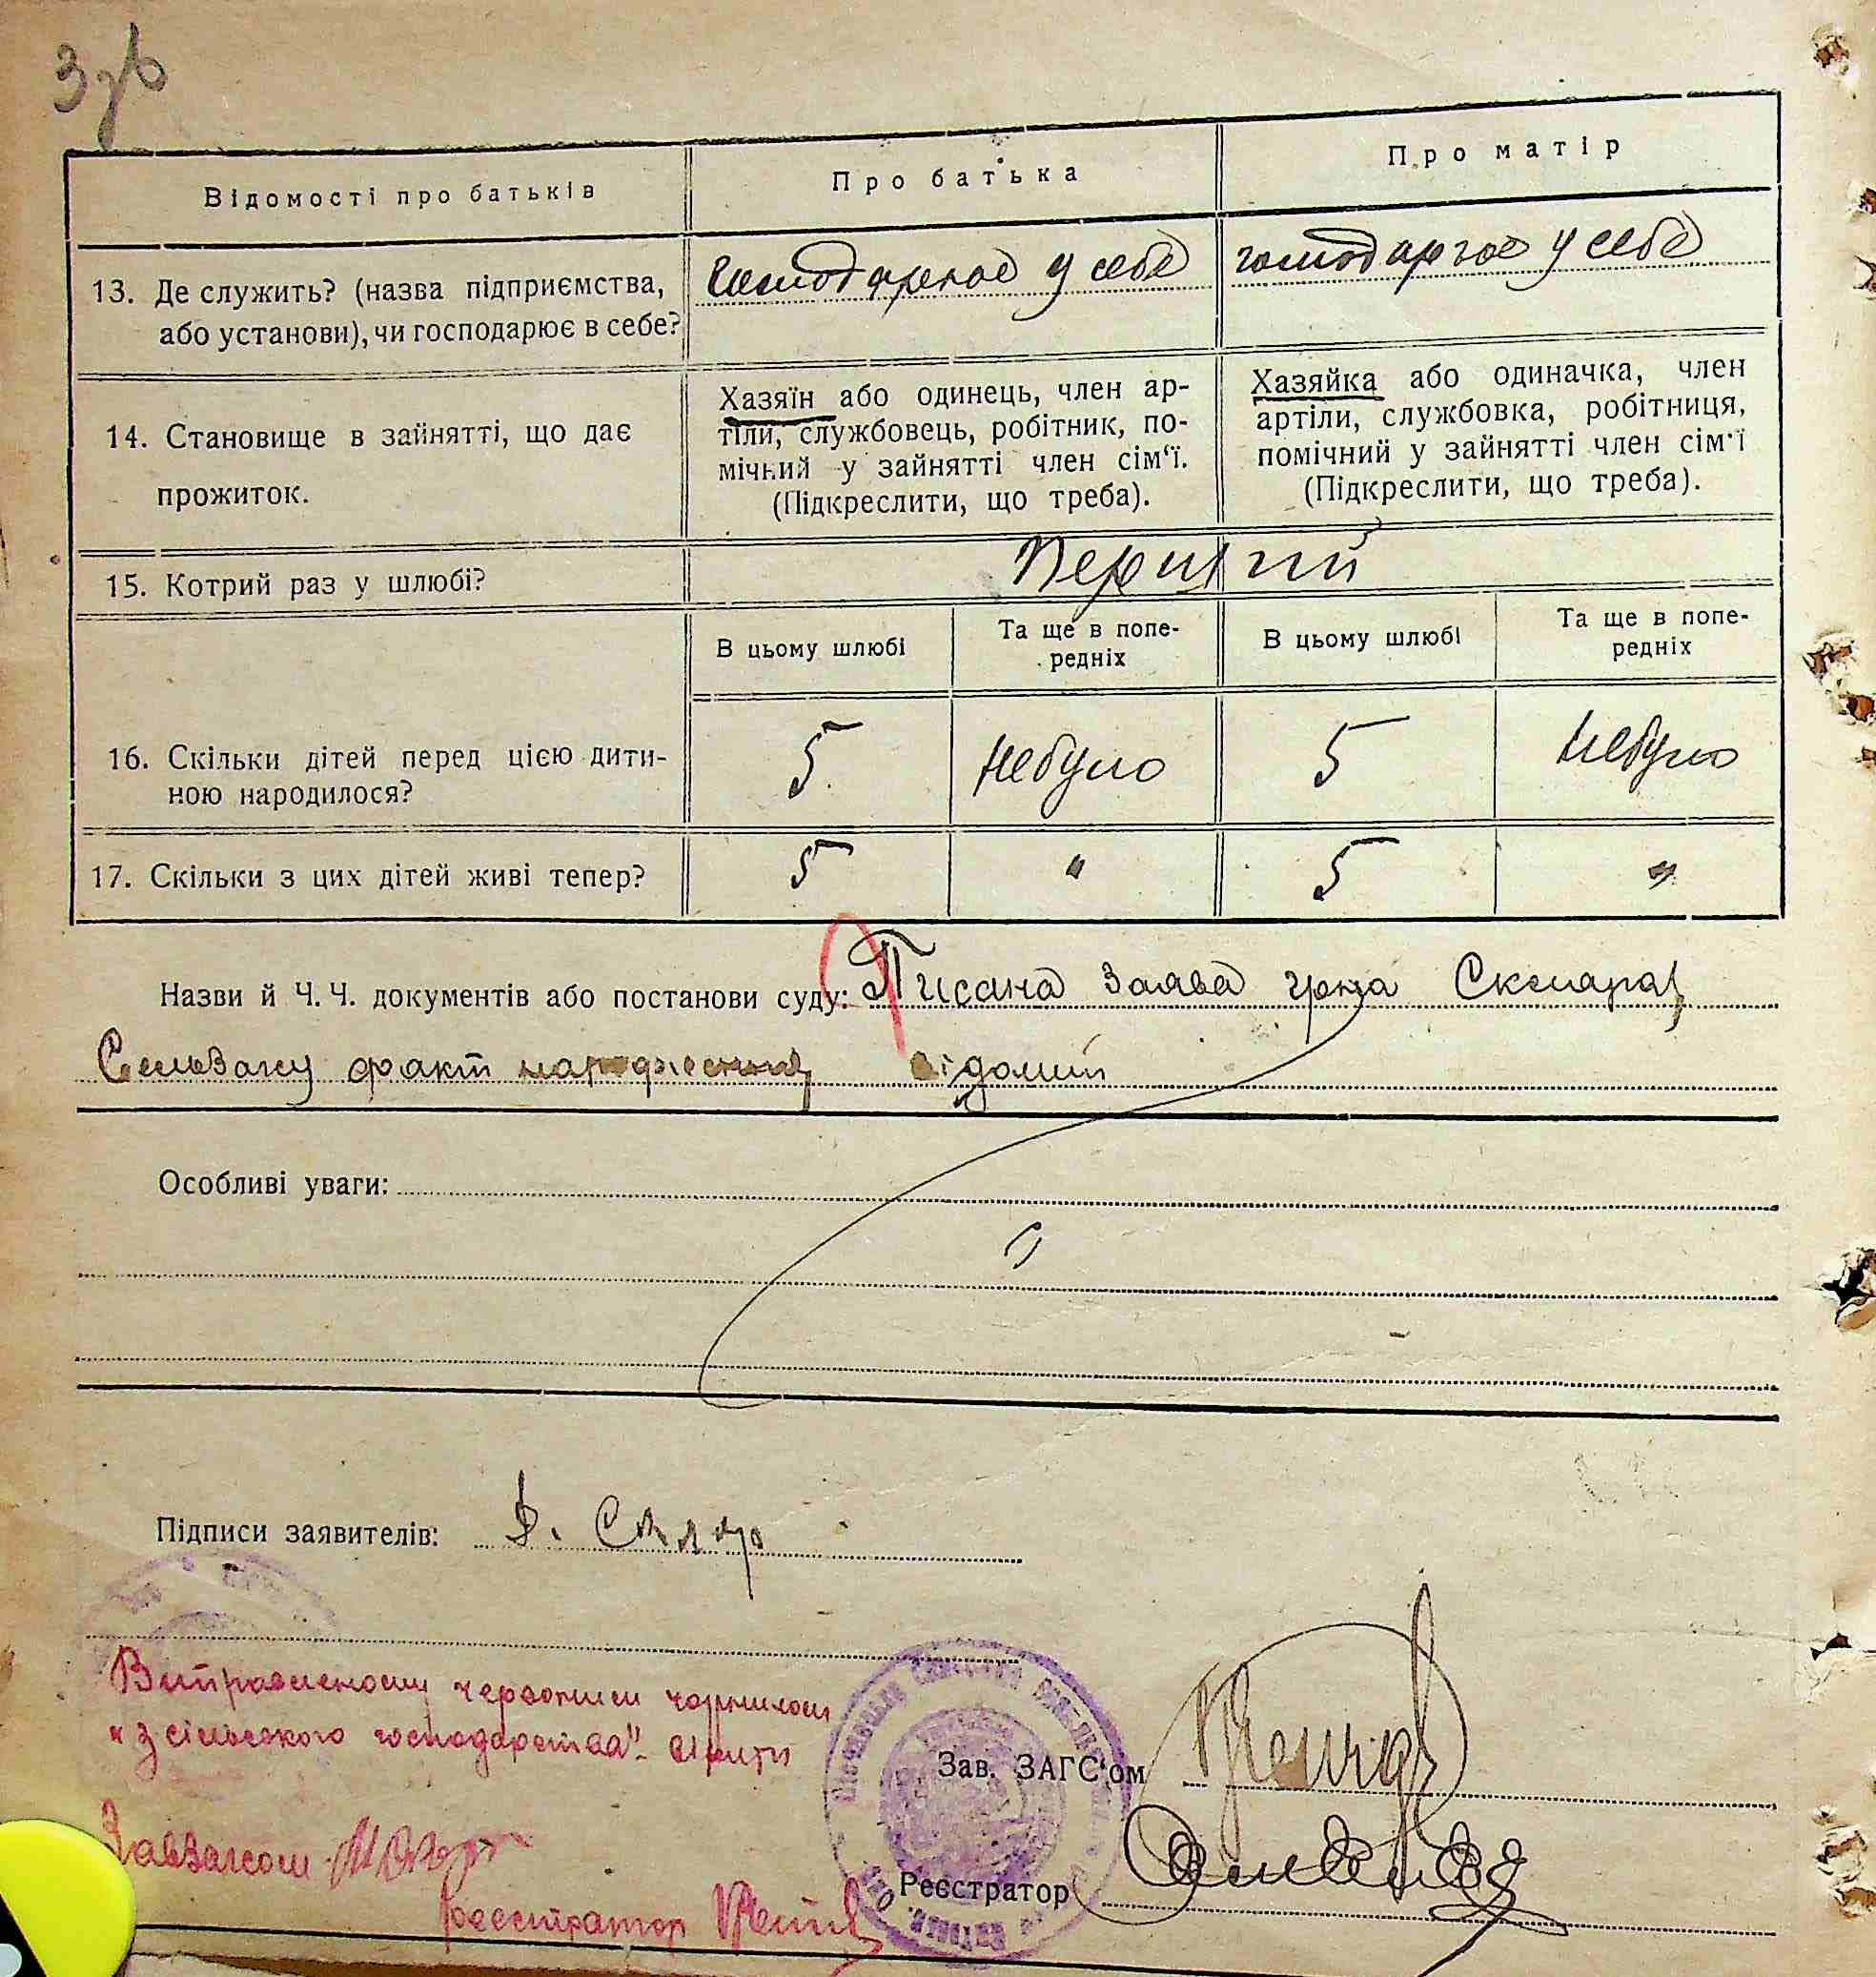 3
Відомості про батьків
Про батька
Про матір
13. Де служить? (назва підприємства,
або установи), чи господарює в себе?
господарює у себе
господарює у себе
14. Становище в зайнятті, що дає
прожиток.
Хазяїн або одинець, член ар-
тіли, службовець, робітник, по-
мічний у зайнятті член сім'ї.
(Підкреслити, що треба).
Хазяйка або одиначка, член
артіли, службовка, робітниця,
помічний у зайнятті член сім'ї
(Підкреслити, що треба).
15. Котрий раз у шлюбі?
Перший
В цьому шлюбі
Та ще в попе-
редніх
В цьому шлюбі
Та ще в попе-
редніх
16. Скільки дітей перед цією дити-
ною народилося?
5
небуло
5
небуло
17. Скільки з цих дітей живі тепер?
5
"
5
"
Назви й Ч. Ч. документів або постанови суду: Писана заява гр-на Скляра,
Сельзагсу факт народження відомий
Особливі уваги:
Підписи заявителів: Скляр
Виправленому червоним чорнилом
"з сільського господарства" вірити
Завзагсом
реєстратор
Зав. ЗАГС'ом
Реєстратор